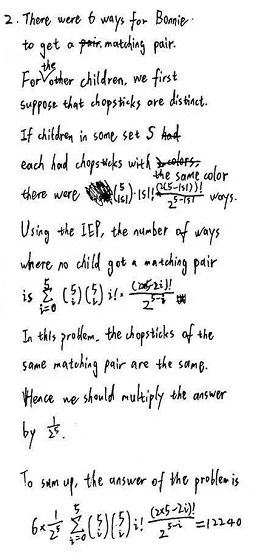 2. There were 6 ways for Bonnie
to get a pair. matching pair.
For the other children, we first
suppose that chopsticks are distinct.
If children in some set S had
each had chopsticks with 2 colors, the same color
there were (5 |S|)·|S|! (2(5-|S|))! / 2^(5-|S|) ways.
Using the IEP, the number of ways
where no child got a matching pair
is Σ_{i=0}^{5} (5 i)(5 i) i! × (2×5-2i)! / 2^(5-i)
In this problem, the chopsticks of the
same matching pair are the same.
Hence we should multiply the answer
by 1/2^5.
To sum up, the answer of the problem is
6 × 1/2^5 Σ_{i=0}^{5} (5 i)(5 i) i! (2×5-2i)! / 2^(5-i) = 12240